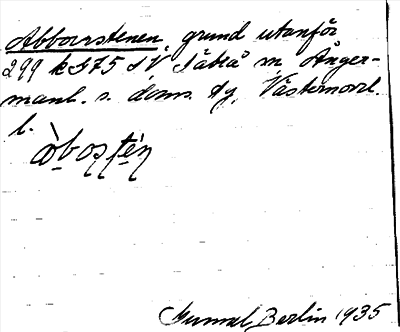 Abborrstenen, grund utanför
299 kf75 SV Säbrå sn, Ånger-
manl. s. doms. tg, Västernorrl.
l.
àbosté̩n
Gunnel Berlin 1935